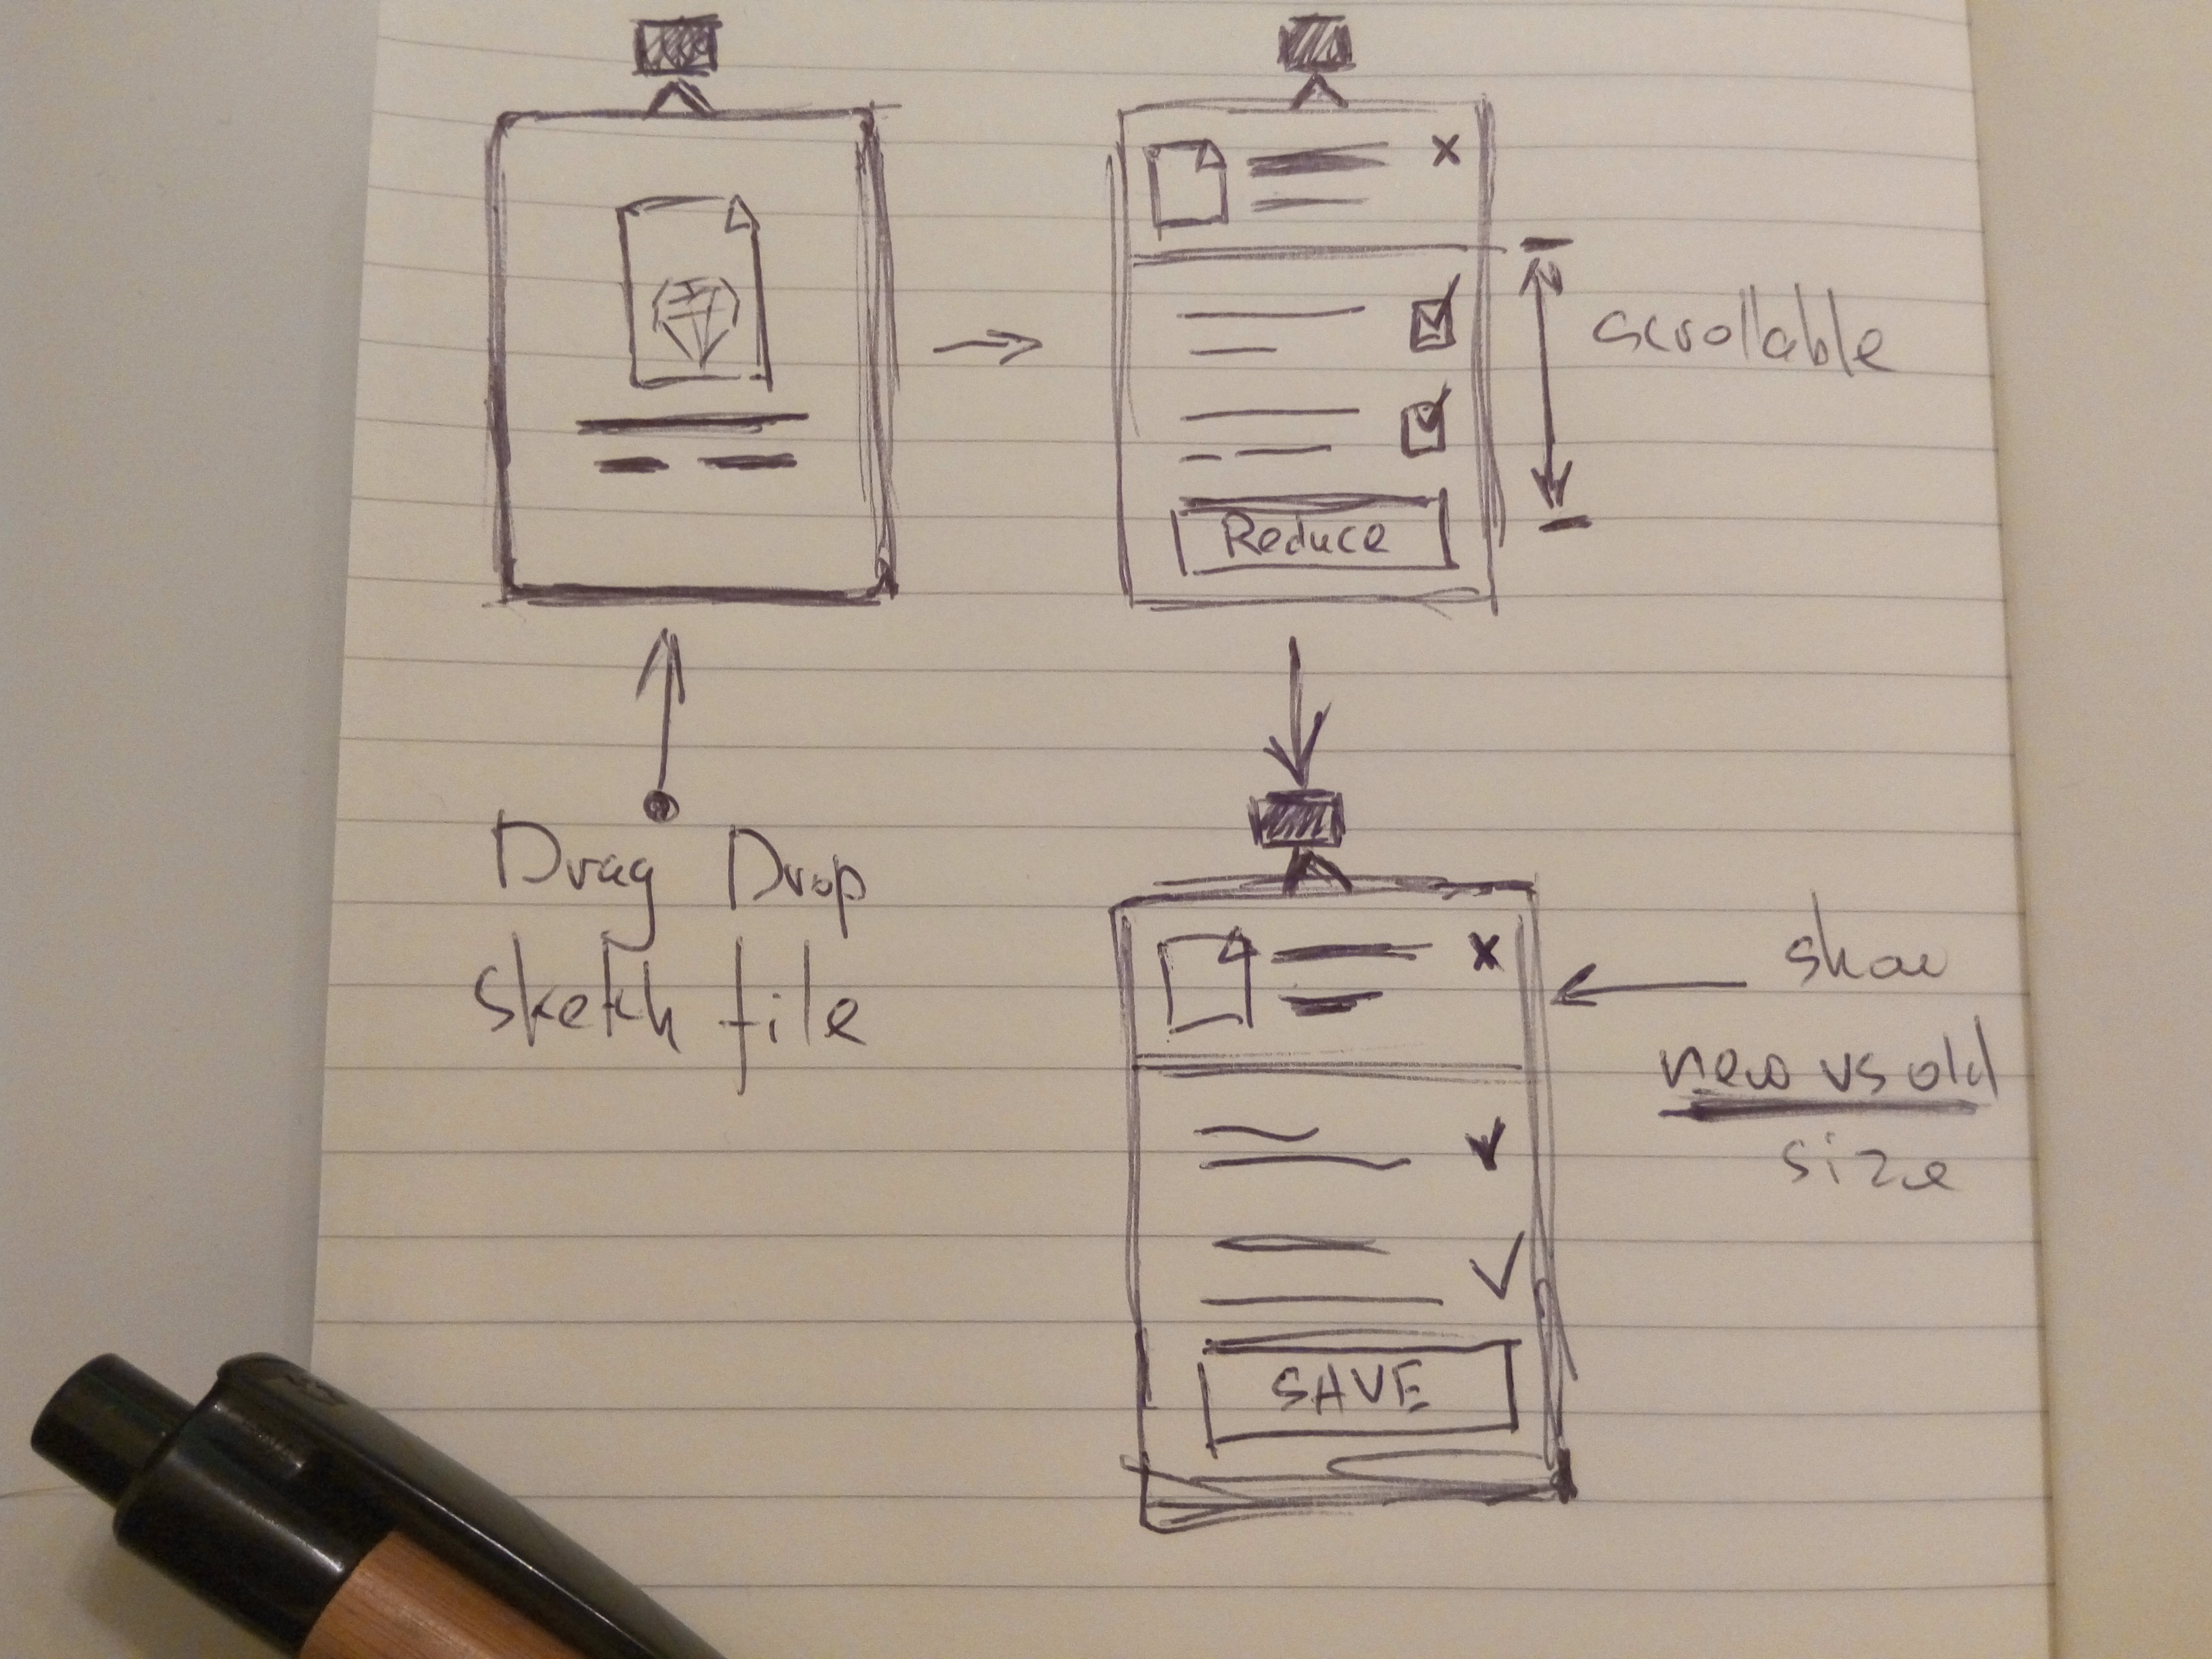 scrollable
Reduce
Drag Drop
sketch file
show
new vs old
size
SAVE